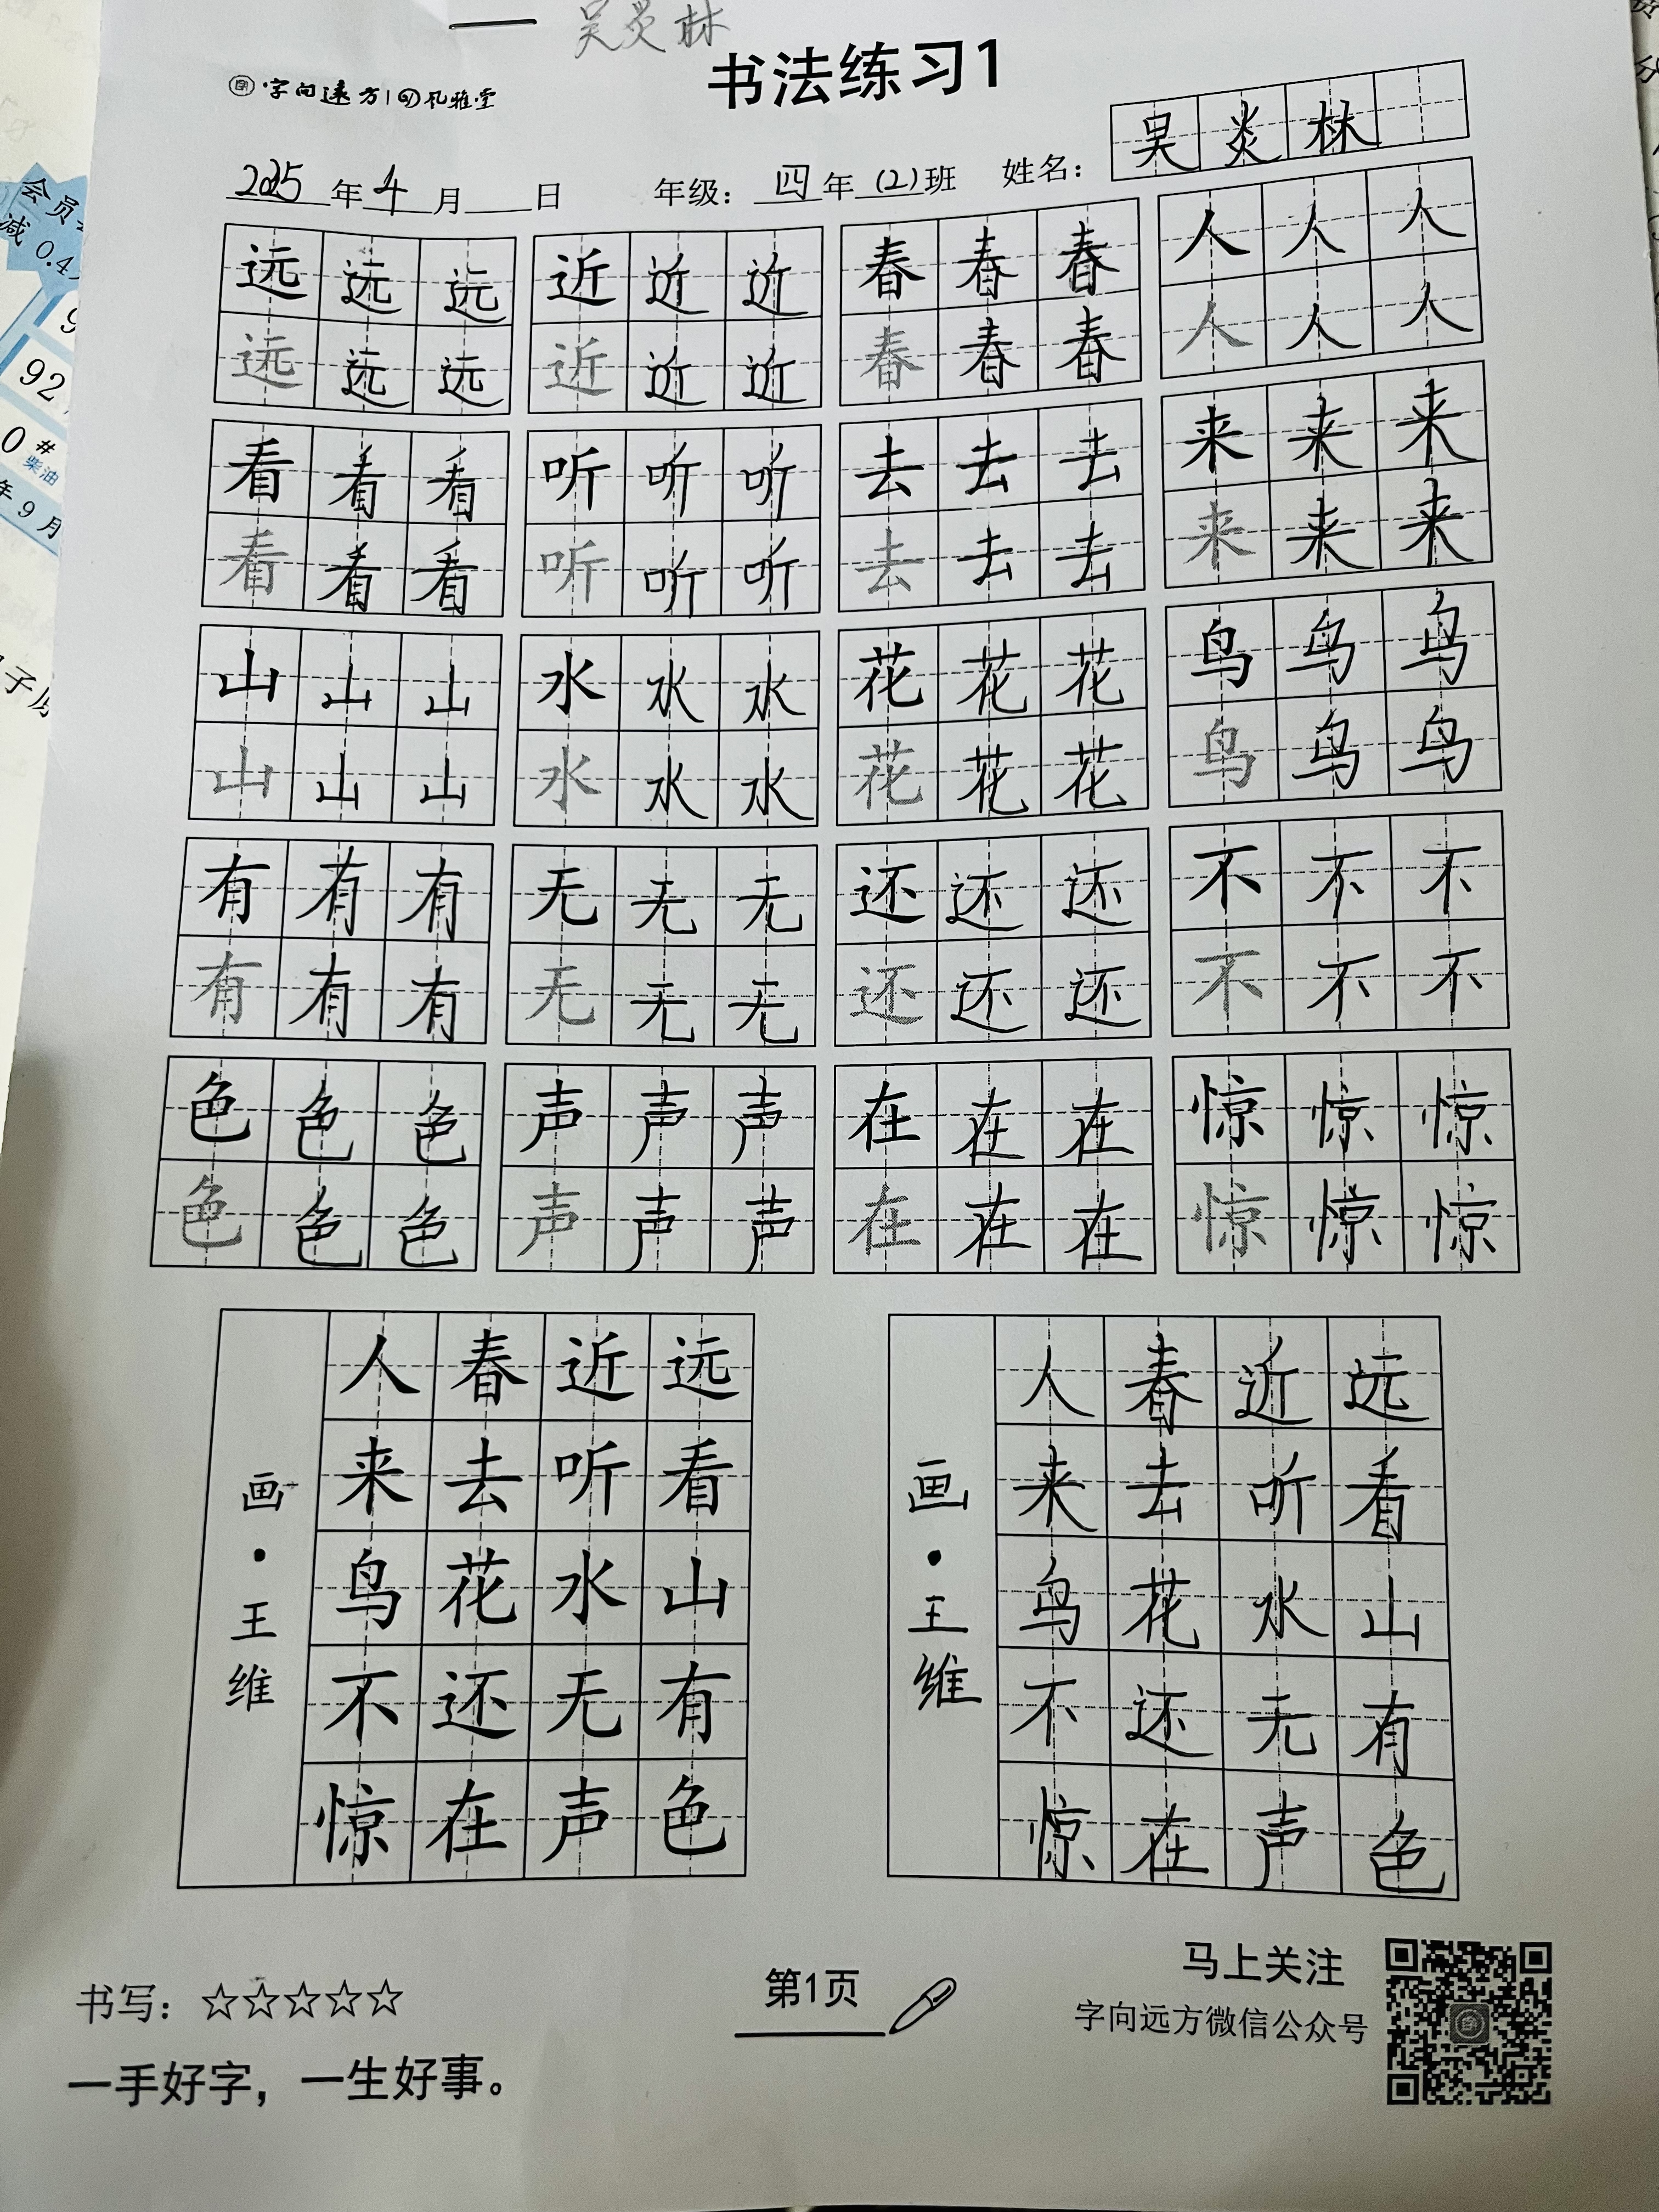 吴炎林
字向远方 风雅堂
书法练习1
吴炎林
2025年4月 日 年级：四年(2)班 姓名：
远远远 近近近 春春春 人人人
远远远 近近近 春春春 人人人
看看看 听听听 去去去 来来来
看看看 听听听 去去去 来来来
山山山 水水水 花花花 鸟鸟鸟
山山山 水水水 花花花 鸟鸟鸟
有有有 无无无 还还还 不不不
有有有 无无无 还还还 不不不
色色色 声声声 在在在 惊惊惊
色色色 声声声 在在在 惊惊惊
远看山有色
近听水无声
春去花还在
人来鸟不惊
画·王维
远看山有色
近听水无声
春去花还在
人来鸟不惊
画·王维
书写：☆☆☆☆☆
一手好字，一生好事。
第1页
马上关注
字向远方微信公众号
会员
减 0.4
92
0#
柴油
年9月